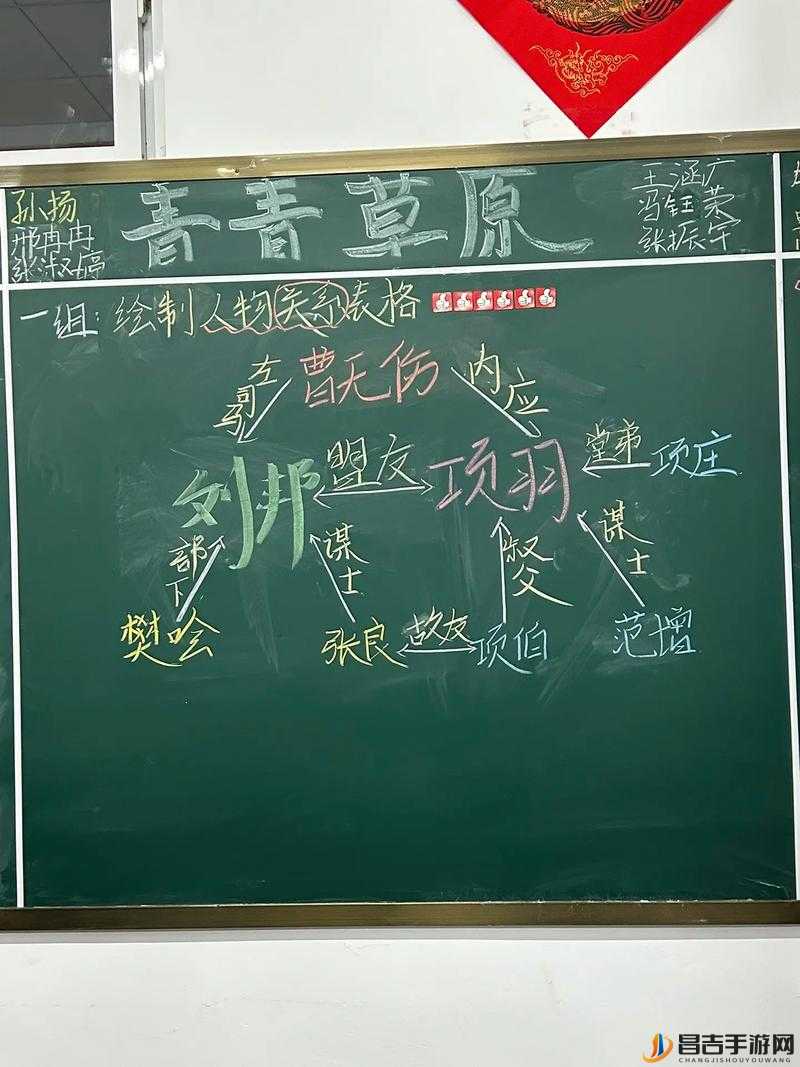 孙扬
邢冉冉
青青草原
王涵广
冯钰荣
张振午
一组：绘制人物关系表格
左司马
曹无伤
内应
刘邦
盟友
项羽
堂弟
项庄
部下
谋士
叔父
谋士
樊哙
张良
故友
项伯
范增
昌吉手游网
CHANGJISHOUYOUWANG